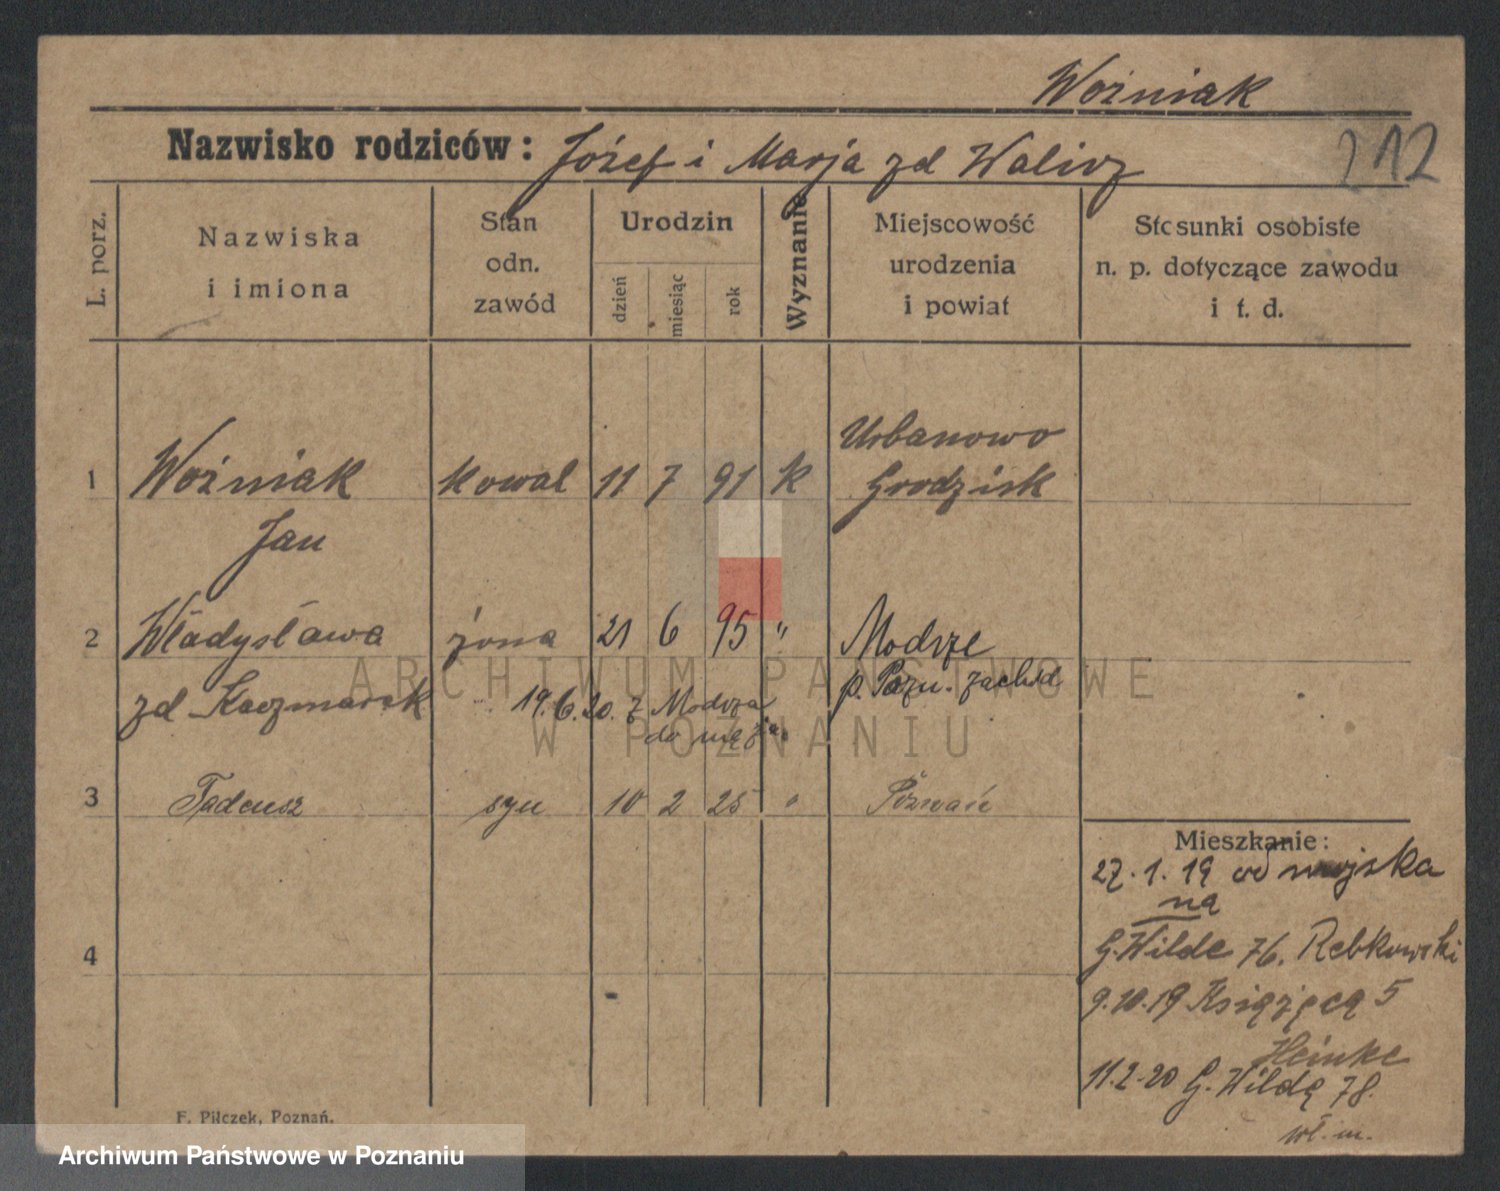 Woźniak
Nazwisko rodziców: Józef i Marja zd
212
L. porz.
Nazwiska
i imiona
Stan
odn.
zawód
Urodzin
dzień
miesiąc
rok
Wyznanie
Miejscowość
urodzenia
i powiat
Stosunki osobiste
n. p. dotyczące zawodu
i t. d.
Urbanowo
1 Woźniak kowal 11 7 91 k Grodzisk
Jan
2 Władysława żona 21 6 95 " Modrze
zd Kaczmarek p. Pozn. zachod
19.6.20. z Modrza
do męża
3 Tadeusz syn 10 2 25 " Poznań
Mieszkanie:
27.1.19 od wojska
na
G. Wilde 76. Rebkowski
4
9.10.19 Książęcą 5
Heinke
11.2.20 G. Wildą 78.
wł. m.
F. Pilczek, Poznań.
ARCHIWUM PAŃSTWOWE
W POZNANIU
Archiwum Państwowe w Poznaniu